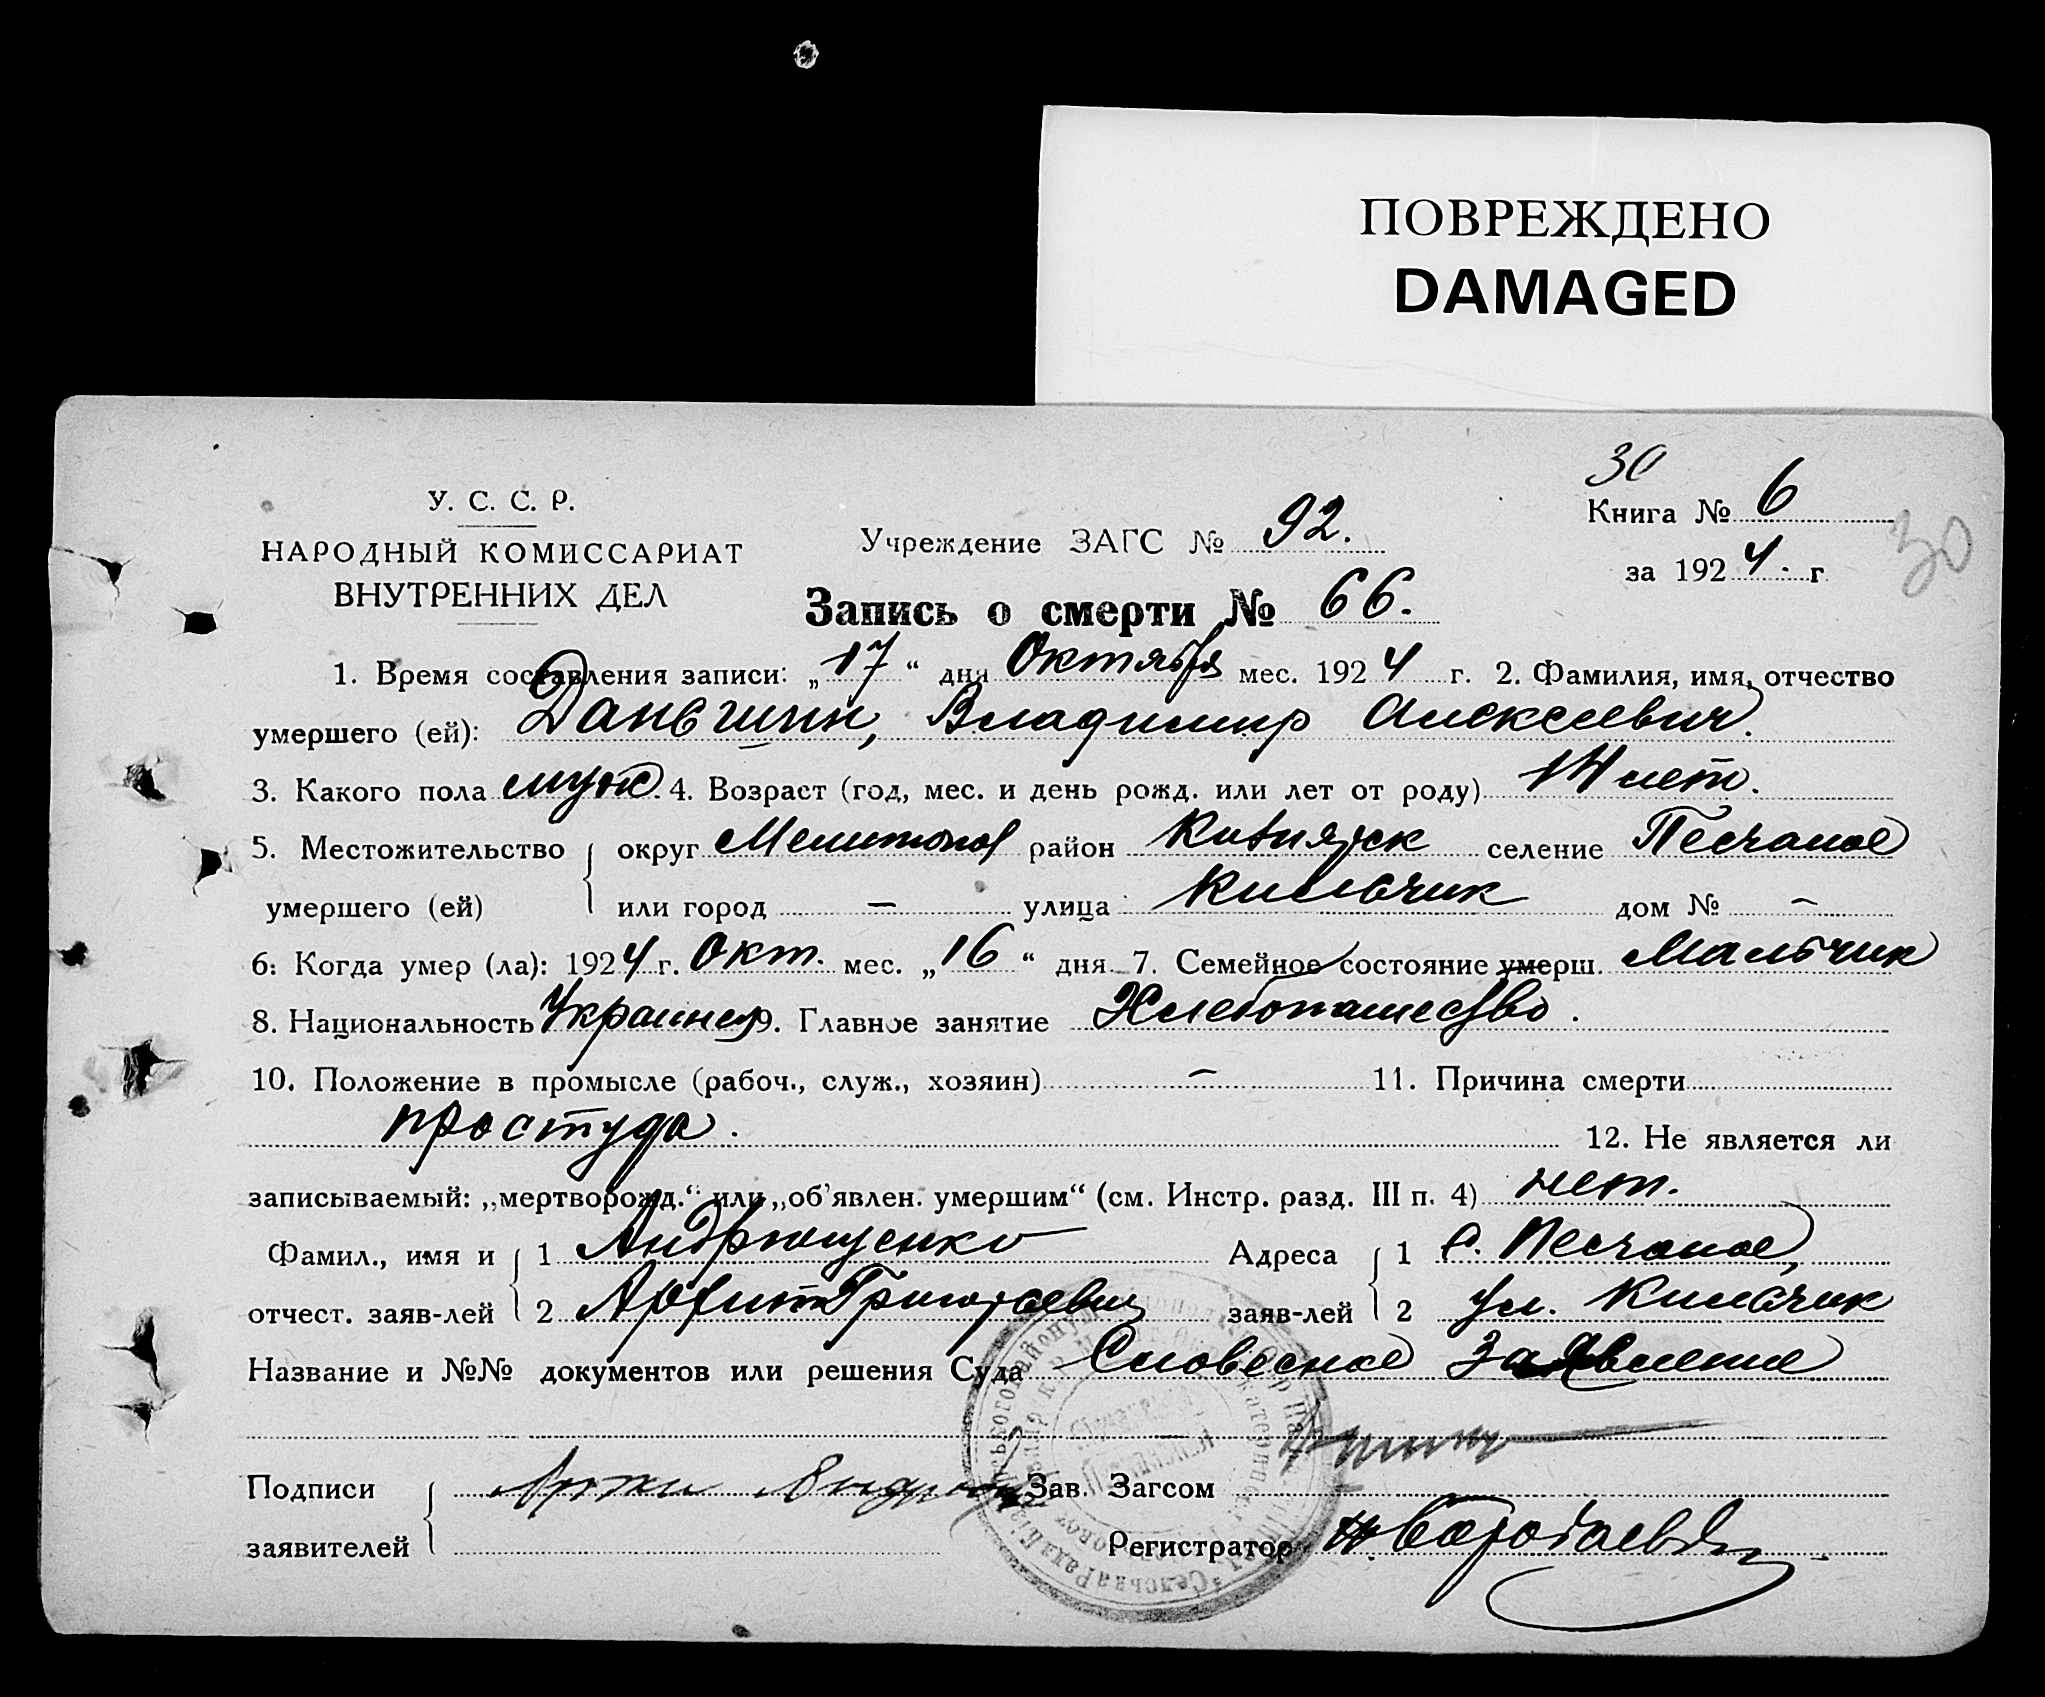 ПОВРЕЖДЕНО
DAMAGED
30
У. С. С. Р.
НАРОДНЫЙ КОМИССАРИАТ
ВНУТРЕННИХ ДЕЛ
Учреждение ЗАГС № 92.
Книга № 6
за 1924 г.
30
Запись о смерти № 66.
1. Время составления записи: „17“ дня Октября мес. 1924 г. 2. Фамилия, имя, отчество
умершего (ей): Даньшин, Владимир Алексеевич.
3. Какого пола муж. 4. Возраст (год, мес. и день рожд. или лет от роду) 14 лет.
5. Местожительство округ Мелитопол район селение Песчаное
умершего (ей) или город — улица Кильчик дом № —
6. Когда умер (ла): 1924 г. Окт. мес. „16“ дня. 7. Семейное состояние умерш. Мальчик
8. Национальность Украинец 9. Главное занятие Хлебопашество.
10. Положение в промысле (рабоч., служ., хозяин) — 11. Причина смерти
простуда. 12. Не является ли
записываемый: „мертворожд.“ или „об'явлен. умершим“ (см. Инстр. разд. III п. 4) нет.
Фамил., имя и 1 Андрющенко Адреса 1 с. Песчаное,
отчест. заяв-лей 2 Архип Григорьевич заяв-лей 2 ул. Кильчик
Название и №№ документов или решения Суда Словесное Заявление
Подписи Зав. Загсом
заявителей Регистратор